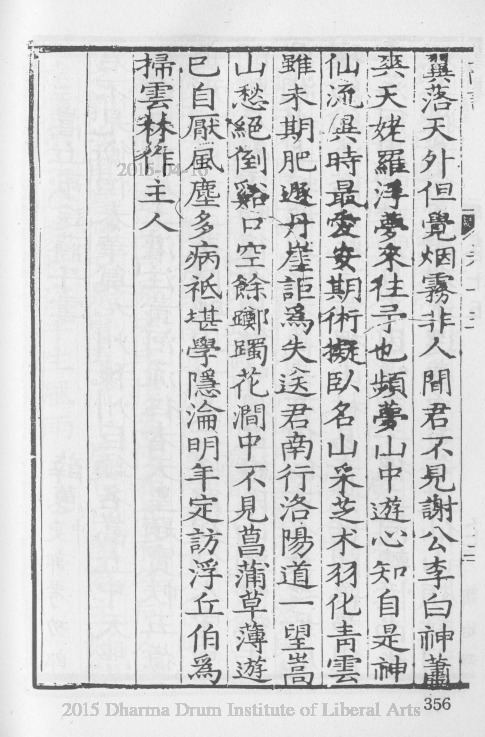 翼落天外但覺烟霧非人間君不見謝公李白神蕭
爽天姥羅浮夢來往予也頻夢山中遊心知自是神
仙流異時最愛安期術擬臥名山采芝术羽化青雲
雖未期肥遯丹崖詎爲失送君南行洛陽道一望嵩
山愁絕倒谿口空餘躑躅花澗中不見菖蒲草薄遊
已自厭風塵多病祗堪學隱淪明年定訪浮丘伯爲
掃雲林作主人
2015-04-16
356
2015 Dharma Drum Institute of Liberal Arts